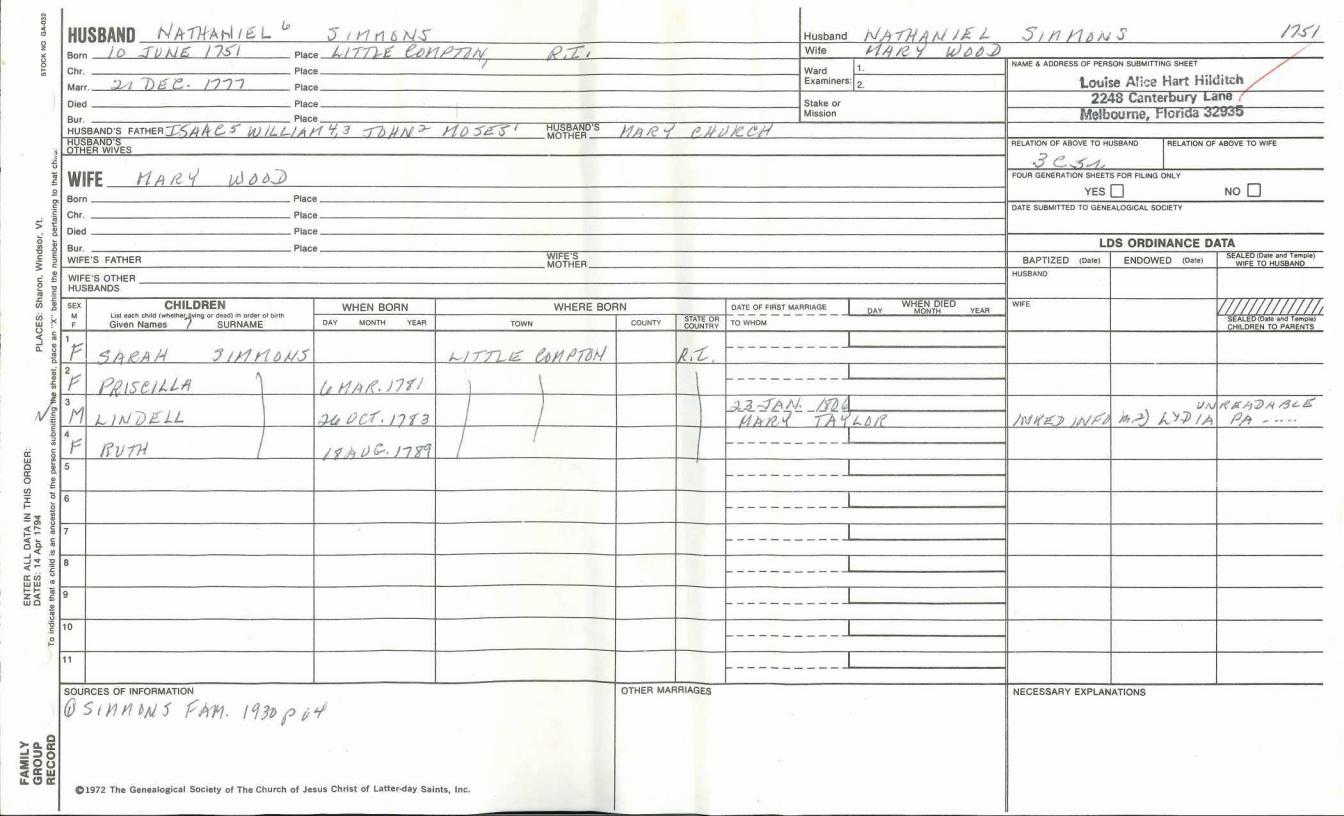 STOCK NO GA-032
HUSBAND NATHANIEL 6 SIMMONS
Born 10 JUNE 1751 Place LITTLE COMPTON, R.I.
Chr. Place
Marr. 21 DEC. 1777 Place
Died Place
Bur. Place
HUSBAND'S FATHER ISAAC5 WILLIAM4,3 JOHN2 MOSES1 HUSBAND'S MOTHER MARY CHURCH
HUSBAND'S OTHER WIVES
WIFE MARY WOOD
Born Place
Chr. Place
Died Place
Bur. Place
WIFE'S FATHER WIFE'S MOTHER
WIFE'S OTHER HUSBANDS
Husband NATHANIEL SIMMONS 1751
Wife MARY WOOD
Ward Examiners: 1. 2.
Stake or Mission
NAME & ADDRESS OF PERSON SUBMITTING SHEET
Louise Alice Hart Hilditch
2248 Canterbury Lane
Melbourne, Florida 32935
RELATION OF ABOVE TO HUSBAND RELATION OF ABOVE TO WIFE
FOUR GENERATION SHEETS FOR FILING ONLY
YES NO
DATE SUBMITTED TO GENEALOGICAL SOCIETY
LDS ORDINANCE DATA
BAPTIZED (Date) ENDOWED (Date) SEALED (Date and Temple) WIFE TO HUSBAND
HUSBAND
WIFE
SEALED (Date and Temple) CHILDREN TO PARENTS
SEX M F CHILDREN WHEN BORN WHERE BORN DATE OF FIRST MARRIAGE WHEN DIED
List each child (whether living or dead) in order of birth
Given Names SURNAME DAY MONTH YEAR TOWN COUNTY STATE OR COUNTRY TO WHOM DAY MONTH YEAR
1 F SARAH SIMMONS LITTLE COMPTON R.I.
2 F PRISCILLA 6 MAR. 1781
3 M LINDELL 26 OCT. 1783 23 JAN. 1806 MARY TAYLOR INKED INFO m2) LYDIA PA ----- UNREADABLE
4 F RUTH 18 AUG. 1789
5
6
7
8
9
10
11
SOURCES OF INFORMATION OTHER MARRIAGES NECESSARY EXPLANATIONS
① SIMMONS FAM. 1930 p 64
©1972 The Genealogical Society of The Church of Jesus Christ of Latter-day Saints, Inc.
FAMILY GROUP RECORD
ENTER ALL DATA IN THIS ORDER:
DATES: 14 Apr 1794
PLACES: Sharon, Windsor, Vt.
To indicate that a child is an ancestor of the person submitting the sheet, place an "X" behind the number pertaining to that